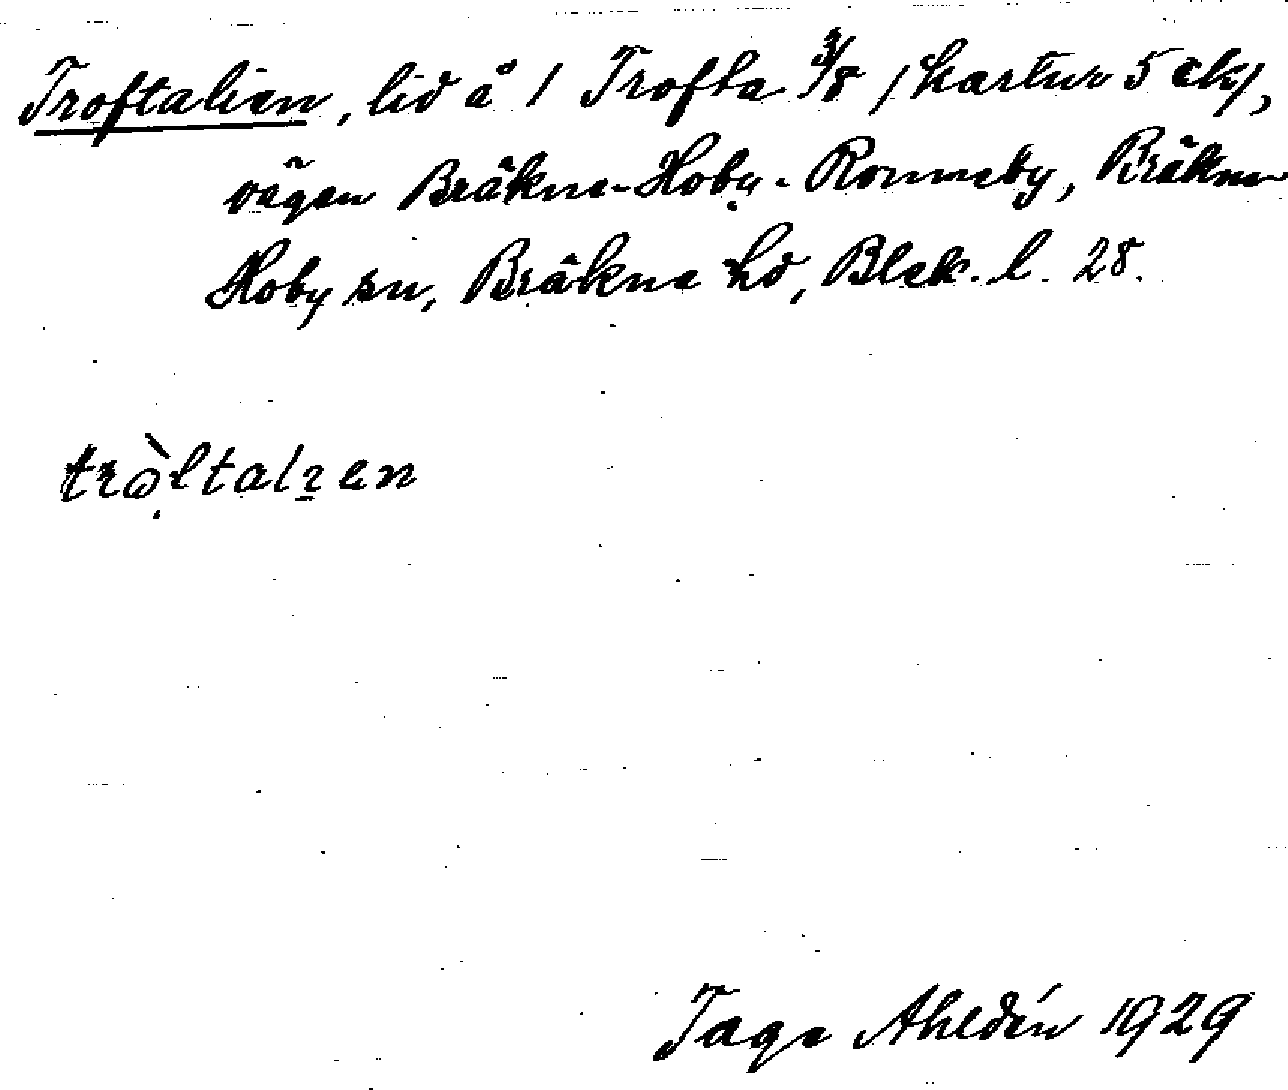 Troftalien, lid å 1 Trofta 3/8 /kartur 5 ek/,
vägen Bräkne-Hoby - Ronneby, Bräkne
Hoby sn, Bräkne hd, Blek. l. 28.
Tage Ahldén 1929